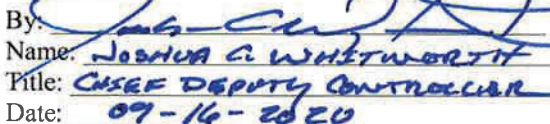 By:
Name: JOSHUA C. WHITWORTH
Title: CHIEF DEPUTY CONTROLLER
Date: 09-16-2020